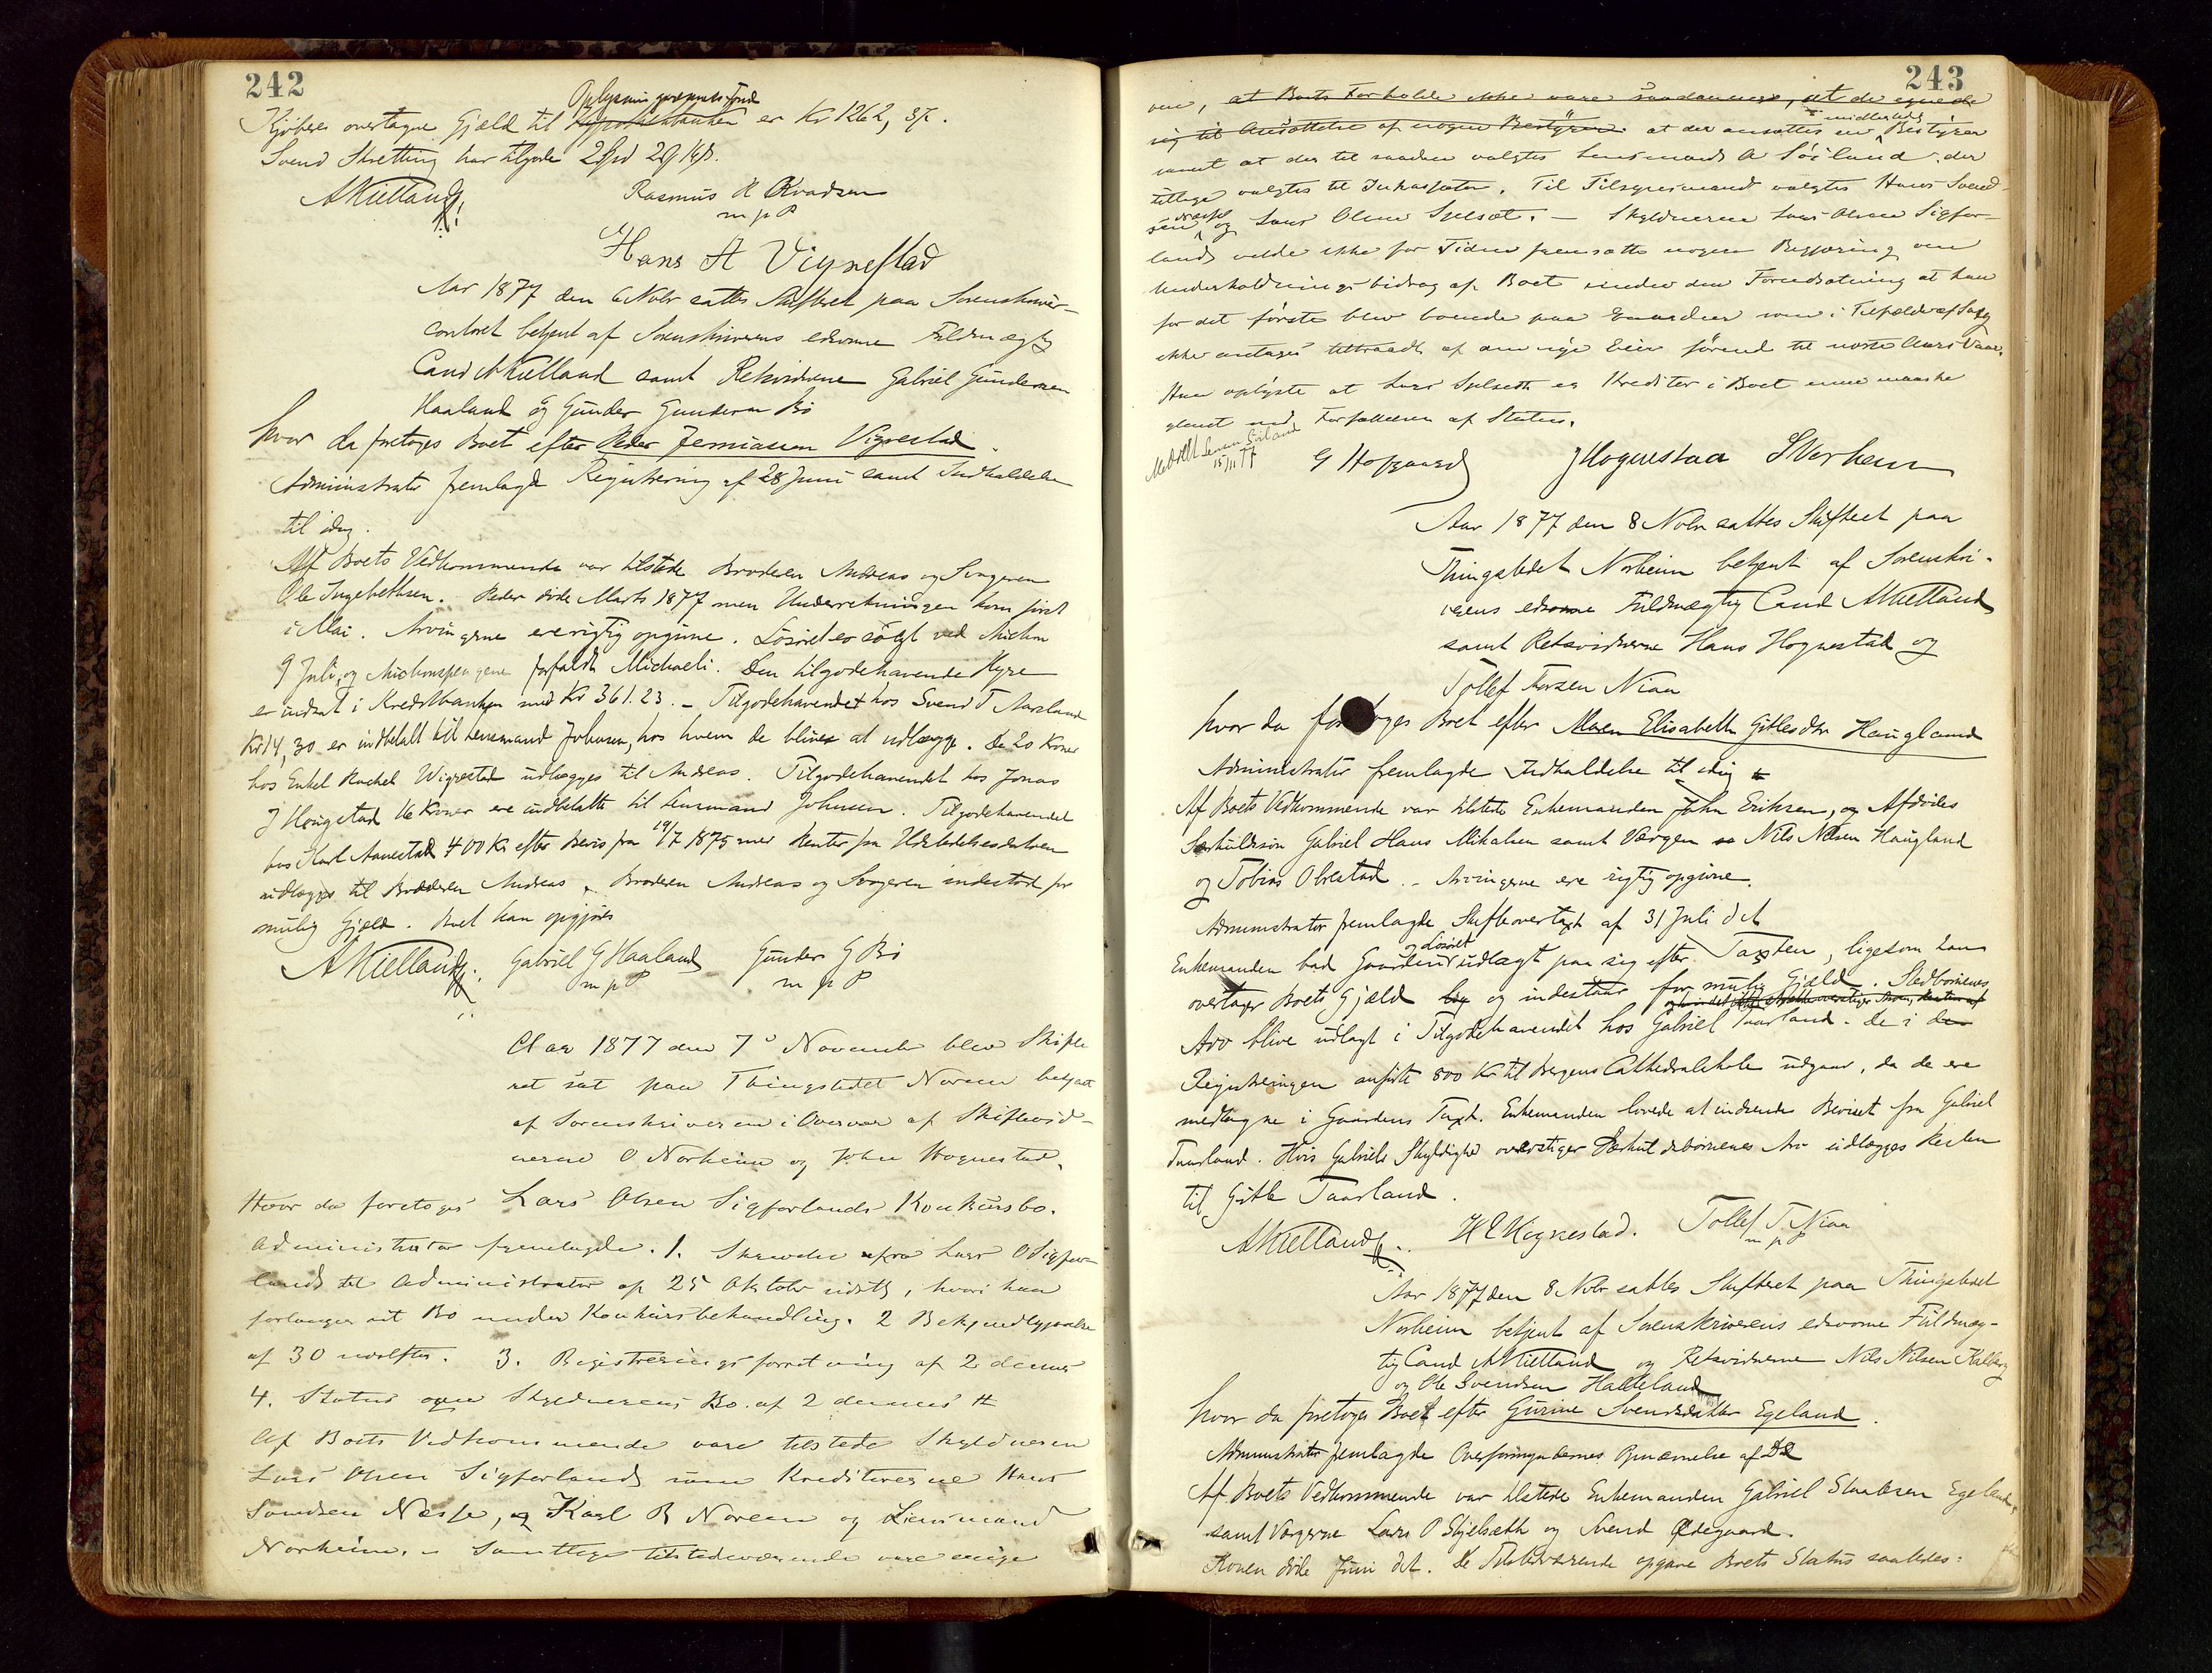 242
Oplysningsvæsenets Fond
Kjøbers overtagne Gjæld til Hypothekbanken er Kr 1262,
Svend Skretting har tilgode 2 Spd 29 Skl.
AKielland
Rasmus R Qvadsen
m p P
Hans A Vignestad
Aar 1877 den 6 Novbr sattes Skifteret paa Sorenskriver-
contoret betjent af Sorenskriverens edsvorne Fuldmægtig
Cand AKielland samt Retsvidnerne Gabriel Gundersen
Haaland og Gunder Gundersen Bø
hvor da foretoges Boet efter Peder Jermiassen Vigrestad.
Administrator fremlagde Registrering af 28 Juni samt Indkaldelse
til idag.
Af Boets Vedkommende var tilstede Broderen Andreas og Svogeren
Ole Ingebrethsen. Peder døde Marts 1877 men Underretningen kom først
i Mai. Arvingerne ere rigtig opgivne. Løsøret er solgt ved Auktion
9 Juli, og Auktionspengene forfaldt Michaeli. Den tilgodehavende Hyre
er indsat i Kreditbanken med Kr 361.23. - Tilgodehavendet hos Svend T Aarsland
Kr 14,30 er indbetalt til Lensmand Johnsen, hos hvem de blive at udlægge. De 20 Kroner
hos Enkel Rachel Wigrestad udlægges til Andreas. Tilgodehavendet hos Jonas
J Hougstad 16 Kroner ere indbetalte til Lensmand Johnsen. Tilgodehavendet
hos Karl Aanestad 400 Kr efter Bevis fra 19/7 1875 med Renter fra Udstedelsesdatoen
udlægges til Broderen Andreas. Broderen Andreas og Svogeren indestod for
mulig Gjæld. Boet kan opgjøres
AKielland
Gabriel G Haaland
m p P
Gunder G Bø
m p P
Aar 1877 den 7de November blev Skifte
ret sat paa Thingstedet Noreim betjent
af Sorenskriveren i Overvær af Skiftevid-
nerne O Norheim og John Hognestad.
Hvor da foretoges Lars Olsen Sigferlands Konkursbo.
Administrator fremlagde. 1. Skrivelse fra Lars O Sigfer-
lands til Administrator af 25 Oktober sidstl, hvori han
forlanger sit Bo under Konkursbehandling. 2 Bekjendtgjørelse
af 30 næstefter. 3. Registreringsforretning af 2 dennes
4. Status over Skyldnerens Bo af 2 dennes
Af Boets Vedkommende vare tilstede Skyldneren
Lars Olsen Sigferlands samt Kreditorerne Hans
Svendsen Næsse, og Karl B Noreim og Lensmand
Norheim. - Samtlige tilstedeværende vare enige
243
om, at Boets Forholde ikke vare saadanne, at de egnede
sig til Ansættelse af nogen Bestyrer. at der ansattes en midlertidig Bestyrer
samt at der til saadan valgtes Lensmands A Søiland der
tillige valgtes til Inkassator. Til Tilsynsmand valgtes Hans Svend-
sen og Lars Olsen Spelset. - Skyldneren Lars Olsen Sigfer-
lands vilde ikke for Tiden fremsætte nogen Begjæring om
Underholdningsbidrag af Boet under den Forudsætning at han
for det første blev boende paa Gaarden som i Tilfælde af Salg
ikke antages tiltraadt af den nye Eier førend til næste Aars Vaar.
Han oplyste at Lars Spelseth er Kreditor i Boet men maaske
glemt ved Forfattelsen af Status.
15/11 77
G Hofgaard
J Hognestad
S Norheim
Aar 1877 den 8 Novbr sattes Skifteret paa
Thingstedet Norheim betjent af Sorenskri-
verens edsvorne Fuldmægtig Cand AKielland
samt Retsvidnerne Hans Hognestad og
Tollef Torsen Niaa
hvor da foretoges Boet efter Maren Elisabeth Gitlesdtr Haugland
Administrator fremlagde Indkaldelse til idag
Af Boets Vedkommende var tilstede Enkemanden John Eriksen, og Afdødes
Særkuldssøn Gabriel Hans Mikalsen samt Værgen Nils Nilsen Haugland
og Tobias Obrestad. - Arvingerne ere rigtig opgivne.
Administrator fremlagde Skifteovertaxt af 31 Juli d A
Enkemanden bad Gaarden og Løsøret udlagt paa sig efter Taxten, ligesom han
overtager Boets Gjæld og indestaar for mulig Gjæld. Stedbørnenes
Arv blive udlagt i Tilgodehavendet hos Gabriel Taarland. De i den
Registreringen anførte 800 Kr til Bergens Cathedralskole udgaar, da de ere
medtagne i Gaardens Taxt. Enkemanden lovede at indsende Beviset fra Gabriel
Taarland. Hvis Gabriels Skyldighed overstiger Særkuldsbørnenes Arv udlægges Resten
til Gitle Taarland.
AKielland
H E Hognestad.
Tollef T. Niaa
m p P
Aar 1877 den 8 Novbr sattes Skifteret paa Thingstedet
Norheim betjent af Sorenskriverens edsvorne Fuldmæg-
tig Cand AKielland og Retsvidnerne Nils Nilsen Kalberg
og Ole Svendsen Haaleland
hvor da foretoges Boet efter Gurine Svendsdatter Egeland.
Administrator fremlagde Overformynderiets Opnævnelse af DD
Af Boets Vedkommende var tilstede Enkemanden Gabriel Staalesen Egeland,
samt Værgerne Lars O Skjelseth og Svend Ødegaard.
Konen døde Juni d A. De Tilstedeværende opgave Boets Status saaledes: